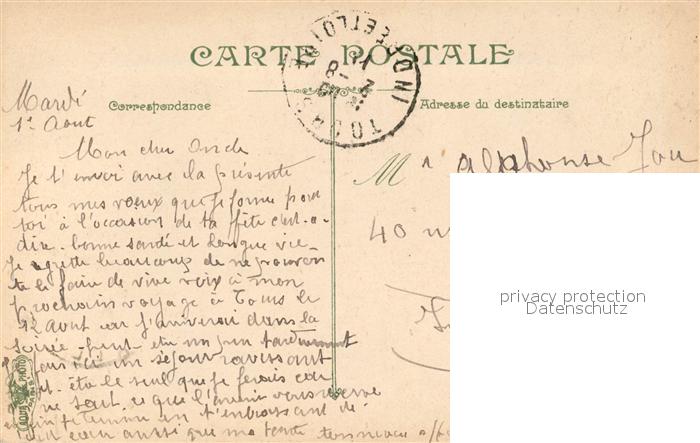 CARTE POSTALE
Correspondance
Adresse du destinataire
TOURS
INDRE ET LOIRE
Mardi
1er Aout
Mon cher Oncle
Je t'envoi avec la présente
tous mes voeux que je forme pour
toi à l'occasion de ta fête c'est-a-
dire - bonne santé et longue vie -
Je regrette beaucoup de ne pouvoir
te le faire de vive voix à mon
prochain voyage à Tours le
12 Aout car j'arriverai dans la
soirée - peut être un peu tardivement
un séjour ravissant
être le seul que je ferais car
on ne sait ce que l'avenir nous réserve
en t'embrassant de
coeur aussi que ma tante
Mr Alphonse
40
privacy protection
Datenschutz